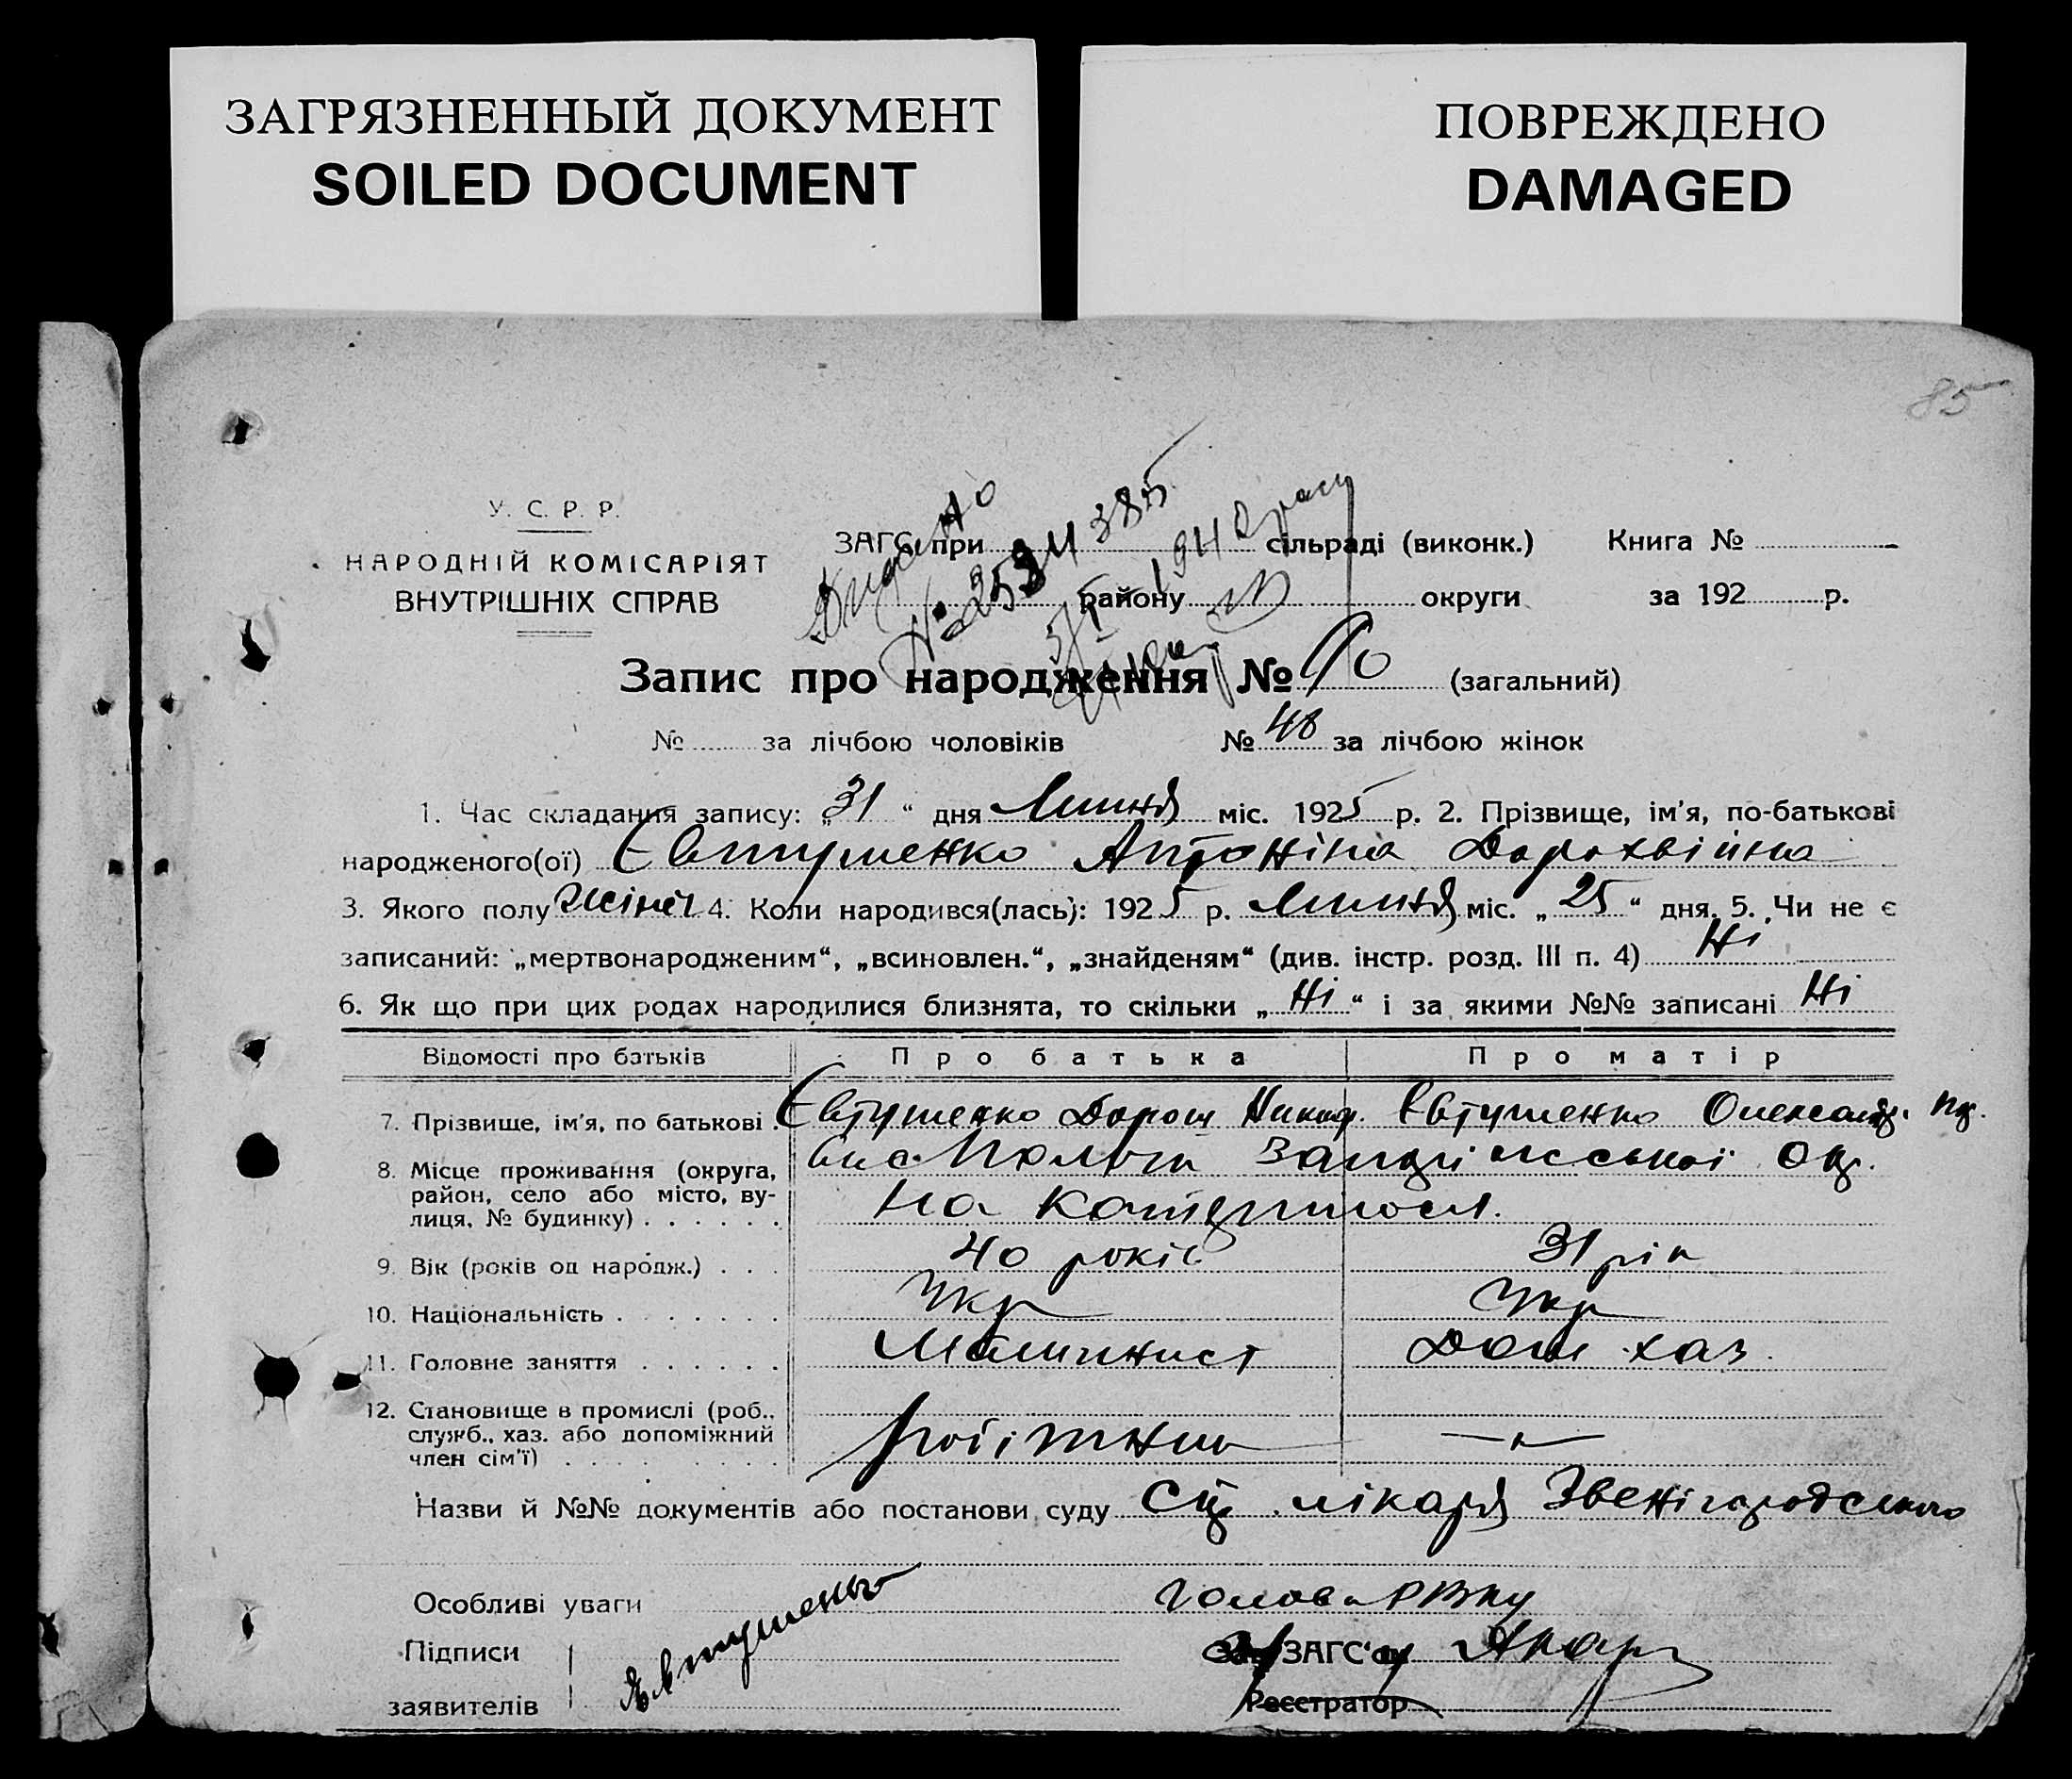 ЗАГРЯЗНЕННЫЙ ДОКУМЕНТ
SOILED DOCUMENT
ПОВРЕЖДЕНО
DAMAGED
85
У. С. Р. Р.
НАРОДНІЙ КОМІСАРІЯТ
ВНУТРІШНІХ СПРАВ
ЗАГС при сільраді (виконк.) Книга №
району округи за 192 р.
Запис про народження № 90 (загальний)
№ за лічбою чоловіків № 48 за лічбою жінок
1. Час складання запису: „31“ дня Липня міс. 1925 р. 2. Прізвище, ім'я, по-батькові
народженого(ої) Євтушенко Антоніна Дорохвіївна
3. Якого полу жіноч 4. Коли народився(лась): 1925 р. Липня міс. „25“ дня. 5. Чи не є
записаний: „мертвонародженим“, „всиновлен.“, „знайденям“ (див. інстр. розд. III п. 4) Ні
6. Як що при цих родах народилися близнята, то скільки „Ні“ і за якими №№ записані Ні
Відомості про батьків Про батька Про матір
7. Прізвище, ім'я, по батькові . Євтушенко Дорош Євтушенко Олександ.
8. Місце проживання (округа,
район, село або місто, ву-
лиця, № будинку) . . . . . .
Пологи Запоріжської Окр.
на
9. Вік (років од народж.) . . . 40 років 31 рік
10. Національність . . . . . . . Укр Укр
11. Головне заняття . . . . . . Машиніст Дом хаз.
12. Становище в промислі (роб.,
служб., хаз. або допоміжний
член сім'ї) . . . . . . . . . робітник — " —
Назви й №№ документів або постанови суду лікаря Звенігородського
Особливі уваги Голова РВКу
Підписи ЗАГС'у
заявителів Євтушенко Реєстратор